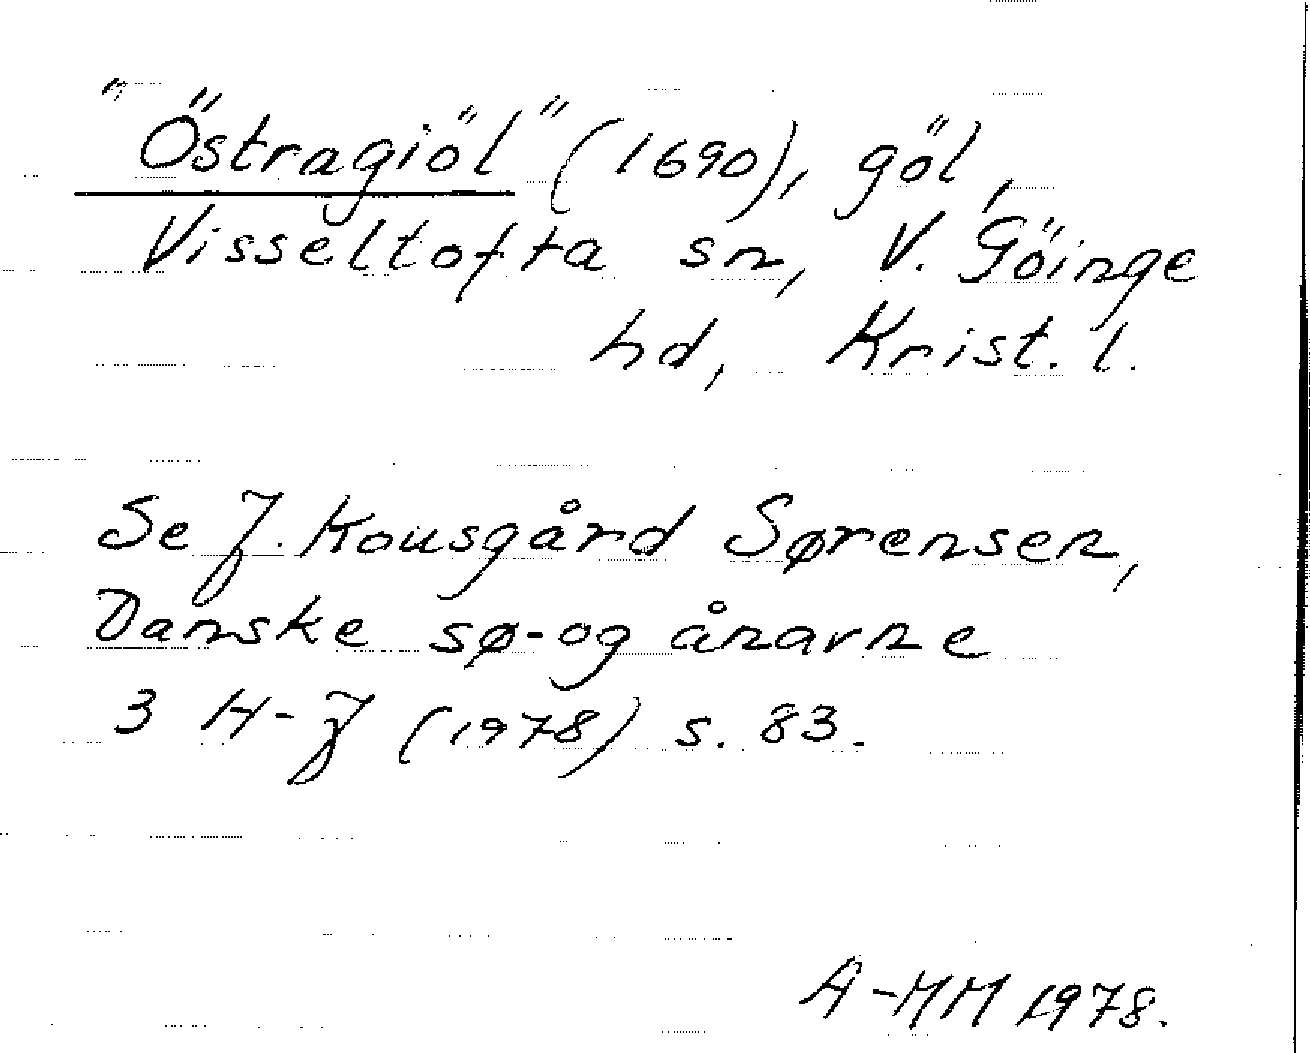 "Östragiöl" (1690), göl,
Visseltofta sn, V. Göinge
hd, Krist. l.
Se J. Kousgård Sørensen,
Danske sø- og ånavne
3 H-J (1978) s. 83.
A-MM 1978.